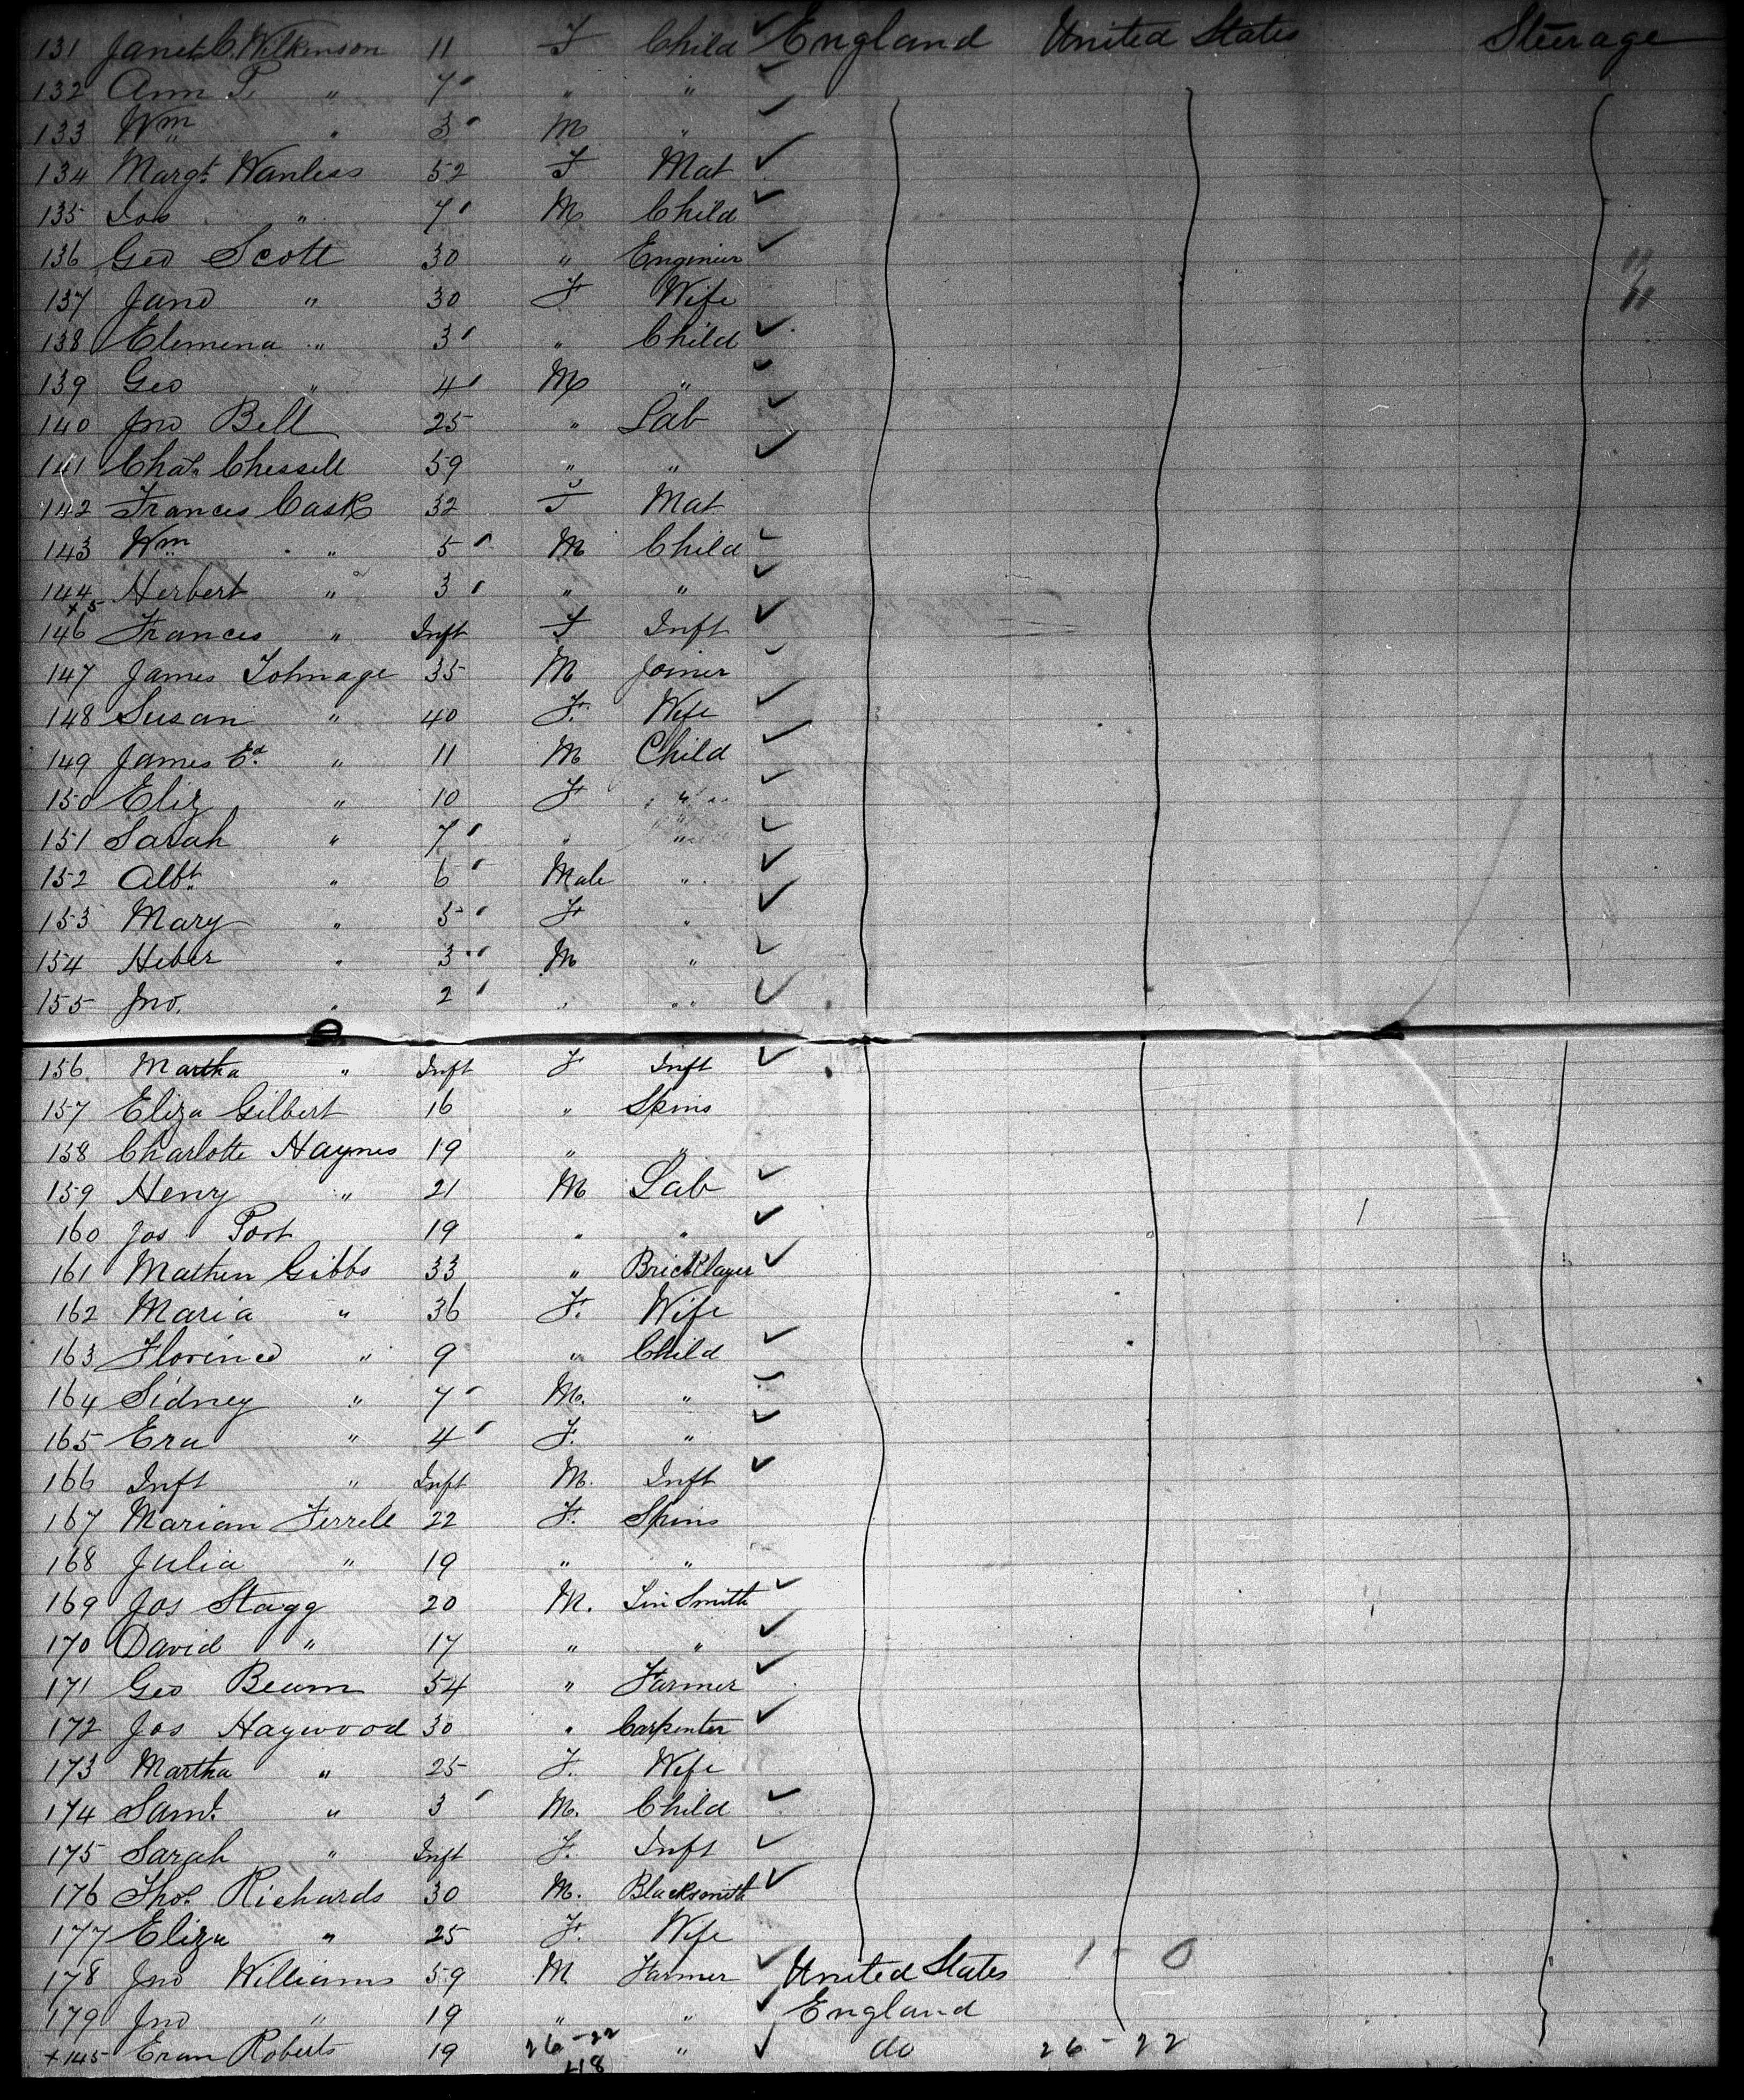 131 Janet C. Wilkinson 11 F Child ✓ England United States Steerage
132 Ann P. " 7 " " ✓
133 Wm " 3 M " ✓
134 Margt. Wanless 52 F Mat ✓
135 Jos " 7 M Child ✓
136 Geo Scott 30 " Engineer ✓
137 Jane " 30 F Wife
138 Elemena " 3 " Child ✓
139 Geo " 4 M " ✓
140 Jno Bell 25 " Lab ✓
141 Chas. Chessell 59 " " ✓
142 Frances Cask 32 F Mat
143 Wm " 5 M Child ✓
144 Herbert " 3 " " ✓
x5
146 Frances " Inft F Inft ✓
147 James Tolmage 35 M Joiner ✓
148 Susan " 40 F. Wife ✓
149 James Ed. " 11 M Child ✓
150 Eliz " 10 F " ✓
151 Sarah " 7 " " ✓
152 Albt. " 6 Male " ✓
153 Mary " 5 F " ✓
154 Heber " 3 M " ✓
155 Jno. " 2 " " ✓
156. Martha " Inft F Inft ✓
157 Eliza Gilbert 16 " Spins
158 Charlotte Haynes 19 " "
159 Henry " 21 M Lab ✓
160 Jos Port 19 " " ✓
161 Mathew Gibbs 33 " Bricklayer ✓
162 Maria " 36 F. Wife
163 Florence " 9 " Child ✓
164 Sidney " 7 M. " ✓
165 Eva " 4 F. " ✓
166 Inft " Inft M. Inft ✓
167 Marian Ferrell 22 F. Spins
168 Julia " 19 " "
169 Jos Stagg 20 M. Tin Smith ✓
170 David " 17 " " ✓
171 Geo Beam 54 " Farmer ✓
172 Jos Haywood 30 " Carpenter ✓
173 Martha " 25 F. Wife
174 Saml. " 3 M. Child ✓
175 Sarah " Inft F. Inft ✓
176 Thos. Richards 30 M. Blacksmith ✓
177 Eliza " 25 F. Wife
178 Jno Williams 59 M Farmer ✓ United States 1 - 0
179 Jno " 19 " " ✓ England
x145 Evan Roberts 19 26-22 " ✓ do 26-22